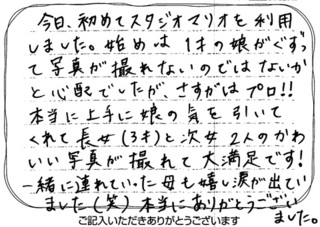 今日、初めてスタジオマリオを利用
しました。始めは1才の娘がぐずっ
て写真が撮れないのではないか
と心配でしたが、さすがはプロ!!
本当に上手に娘の気を引いて
くれて長女(3才)と次女2人のかわ
いい写真が撮れて大満足です!
一緒に連れていった母も嬉し涙が出てい
ました(笑)本当にありがとうござい
ました。
ご記入いただきありがとうございます